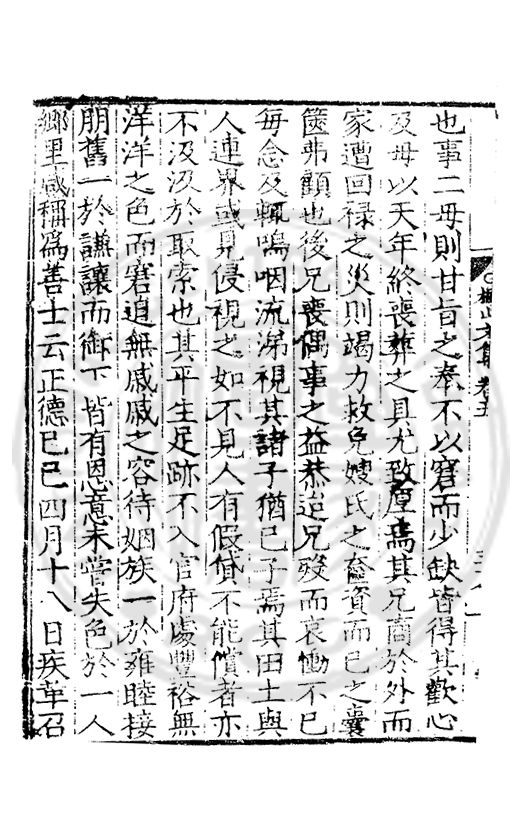 也事二母則甘旨之奉不以窘而少缺皆得其歡心
及母以天年終喪葬之具尤致厚焉其兄商於外而
家遭回祿之災則竭力救免嫂氏之奩資而已之囊
篋弗顧也後兄喪偶事之益恭迨兄歿而哀慟不已
每念及輒嗚咽流涕視其諸子猶已子焉其田土與
人連界或見侵視之如不見人有假貸不能償者亦
不汲汲於取索也其平生足跡不入官府處豐裕無
洋洋之色而窘迫無戚戚之容待姻族一於雍睦接
朋舊一於謙讓而御下皆有恩意未嘗失色於一人
鄉里咸稱爲善士云正德已巳四月十八日疾革召
山文集 卷五